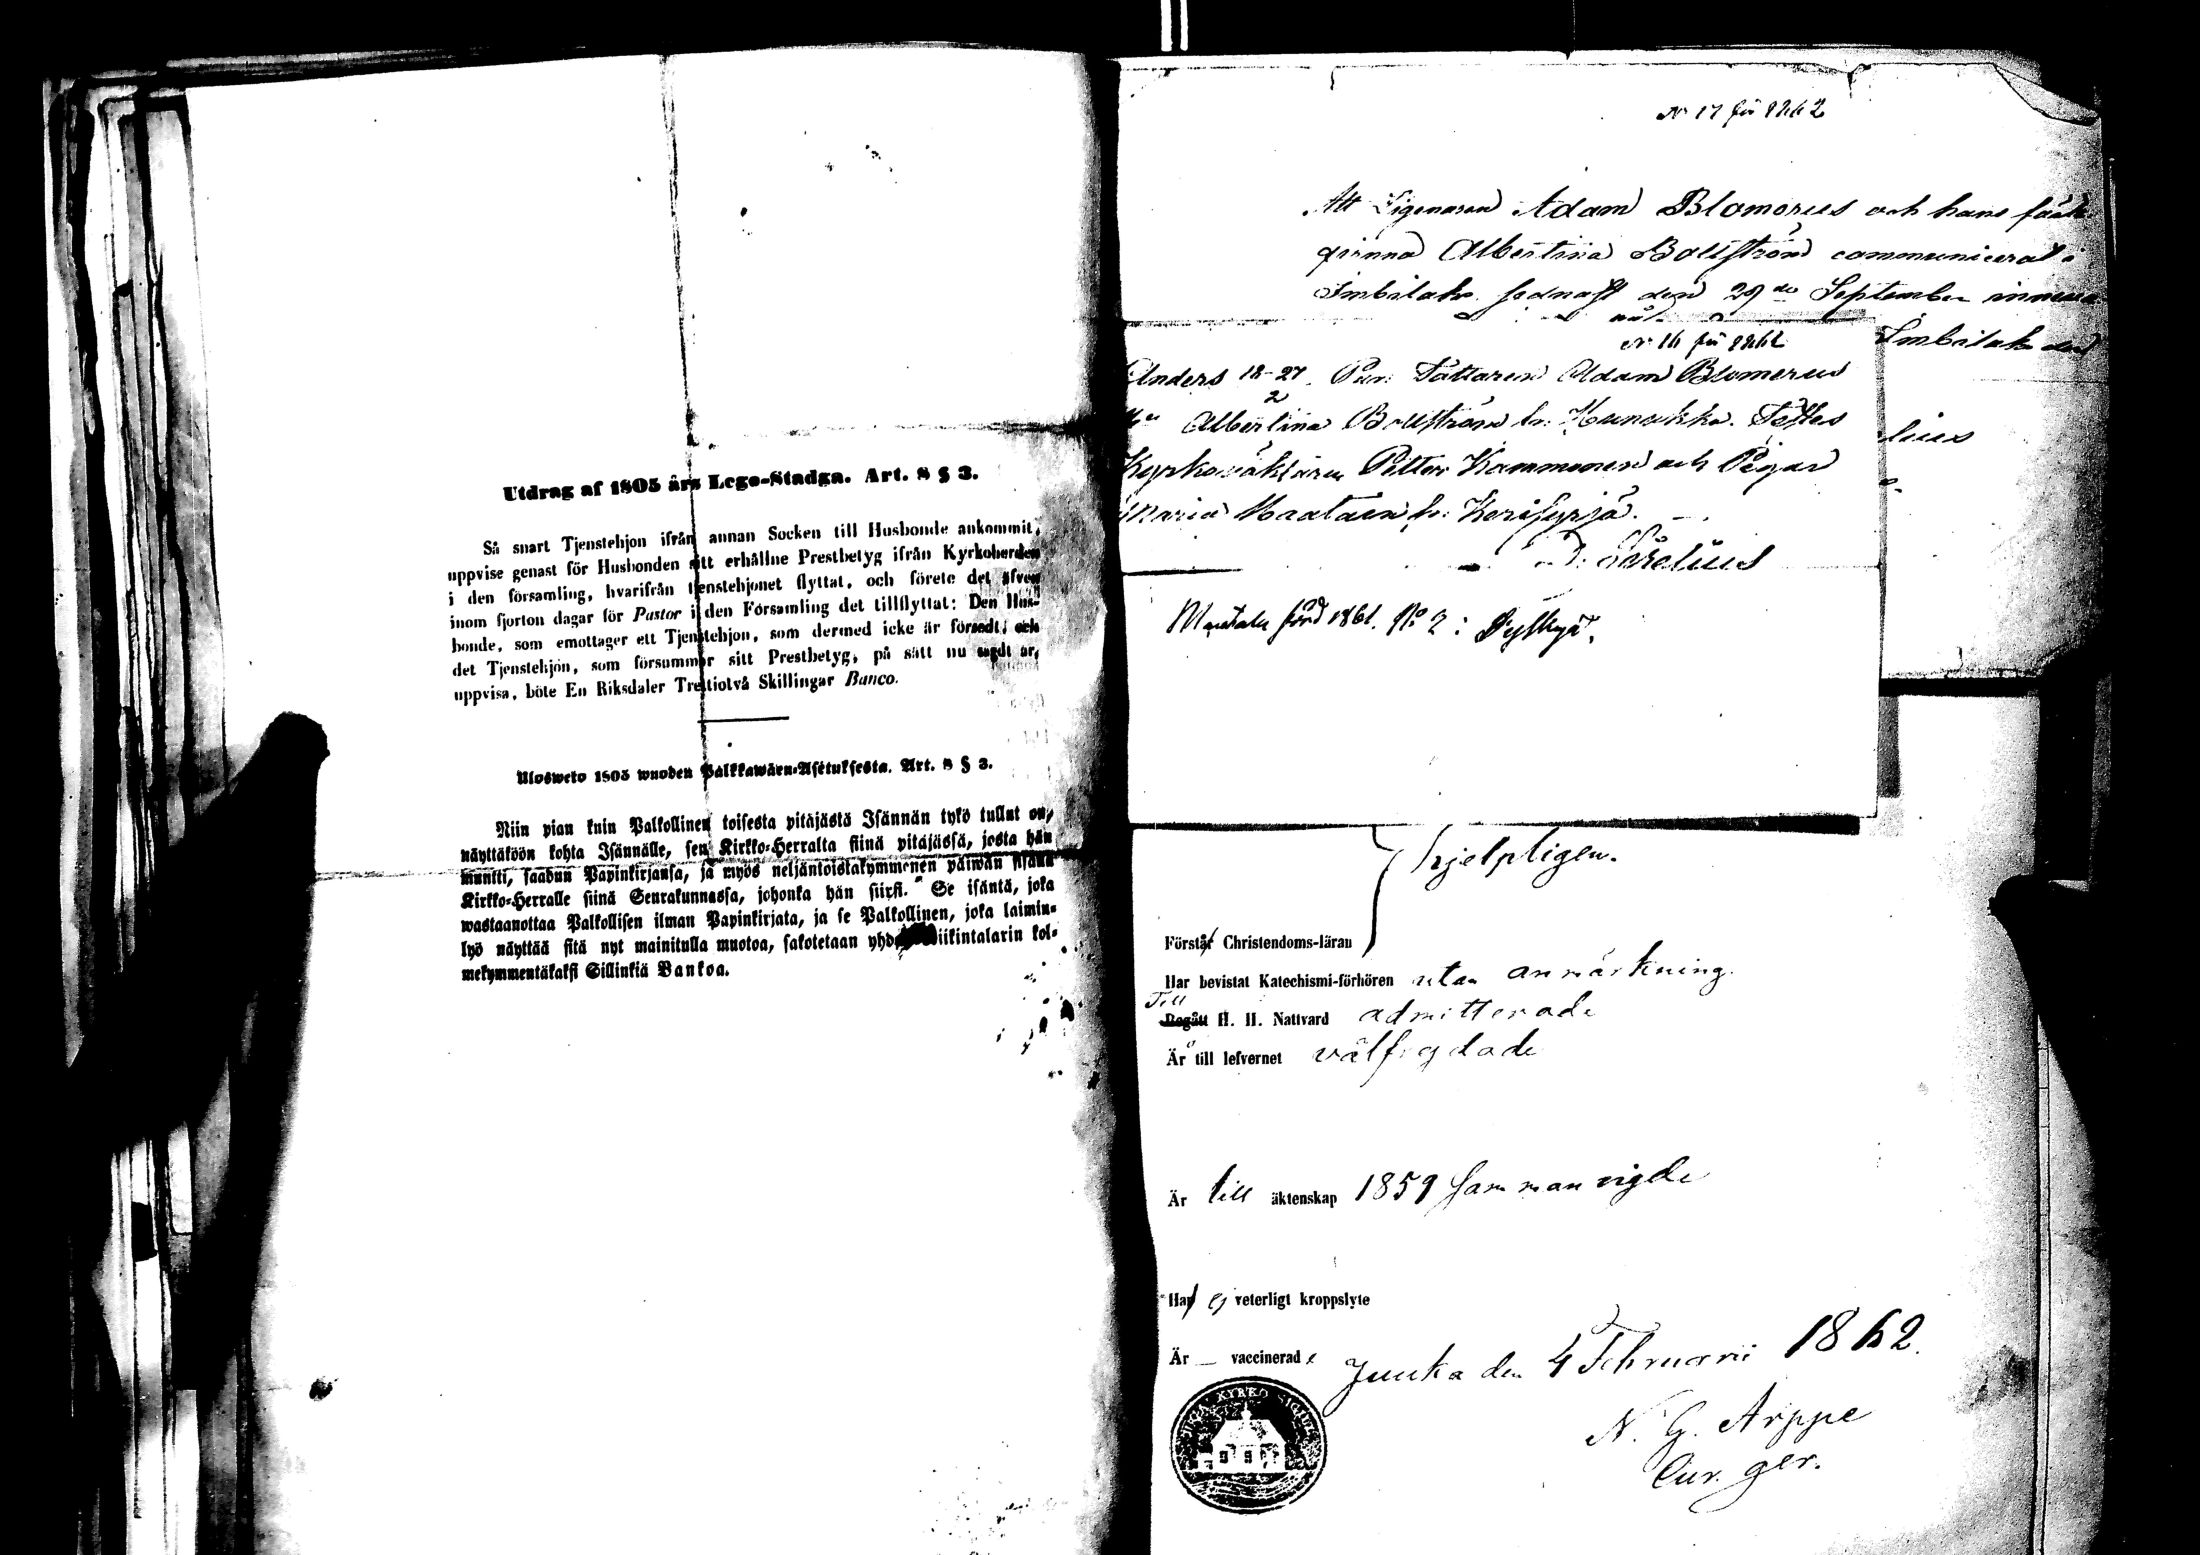 Utdrag af 1805 års Lego-Stadga. Art. 8 § 3.
Så snart Tjenstehjon ifrån annan Socken till Husbonde ankommit,
uppvise genast för Husbonden sitt erhållne Prestbetyg ifrån Kyrkoherden
i den församling, hvarifrån tjenstehjonet flyttat, och förete det äfven
inom fjorton dagar för Pastor i den Församling det tillflyttat: Den Hus-
bonde, som emottager ett Tjenstehjon, som dermed icke är försedt, och
det Tjenstehjon, som försummar sitt Prestbetyg, på sätt nu sagdt är,
uppvisa, böte En Riksdaler Trettiotvå Skillingar Banco.
Ulosweto 1805 wuoden Palkkawäen-Asetuksesta. Art. 8 § 3.
Niin pian kuin Palkollinen toisesta pitäjästä Isännän tykö tullut on,
näyttäköön kohta Isännälle, sen Kirkko-Herralta siinä pitäjässä, josta hän
muutti, saadun Papinkirjansa, ja myös neljäntoistakymmenen päiwän sisään
Kirkko-Herralle siinä Seurakunnassa, johonka hän siirsi. Se isäntä, joka
wastaanottaa Palkollisen ilman Papinkirjata, ja se Palkollinen, joka laimin-
lyö näyttää sitä nyt mainitulla muotoa, sakotetaan yhden Riikintalarin kol-
mekymmentäkaksi Sillinkiä Bankoa.
No 17 för 1862
Att Adam Blomerus och hans fäste-
qvinna Albertina Bollström communicerat i
Imbilaks sednast den 29de September
Imbilaks den
lius
No 16 för 1862
Anders 18-27. Tattaren Adam Blomerus
2
Albertina Bollström fr. Testes
Kyrkovaktaren Petter Kammonen och Pigan
Maria fr. Korisyrjä.
Mantals förd 1861. No 2:
hjelpligen.
Förstå Christendoms-läran
Har bevistat Katechismi-förhören utan anmärkning.
Till
Begått H. H. Nattvard admitterade
Är till lefvernet välfrejdade
Är till äktenskap 1859 sammanvigde
Har ej veterligt kroppslyte
Är vaccinerade
Juuka den 4 Februarii 1862.
KYRKO
N. G. Arppe
Cur. ger.